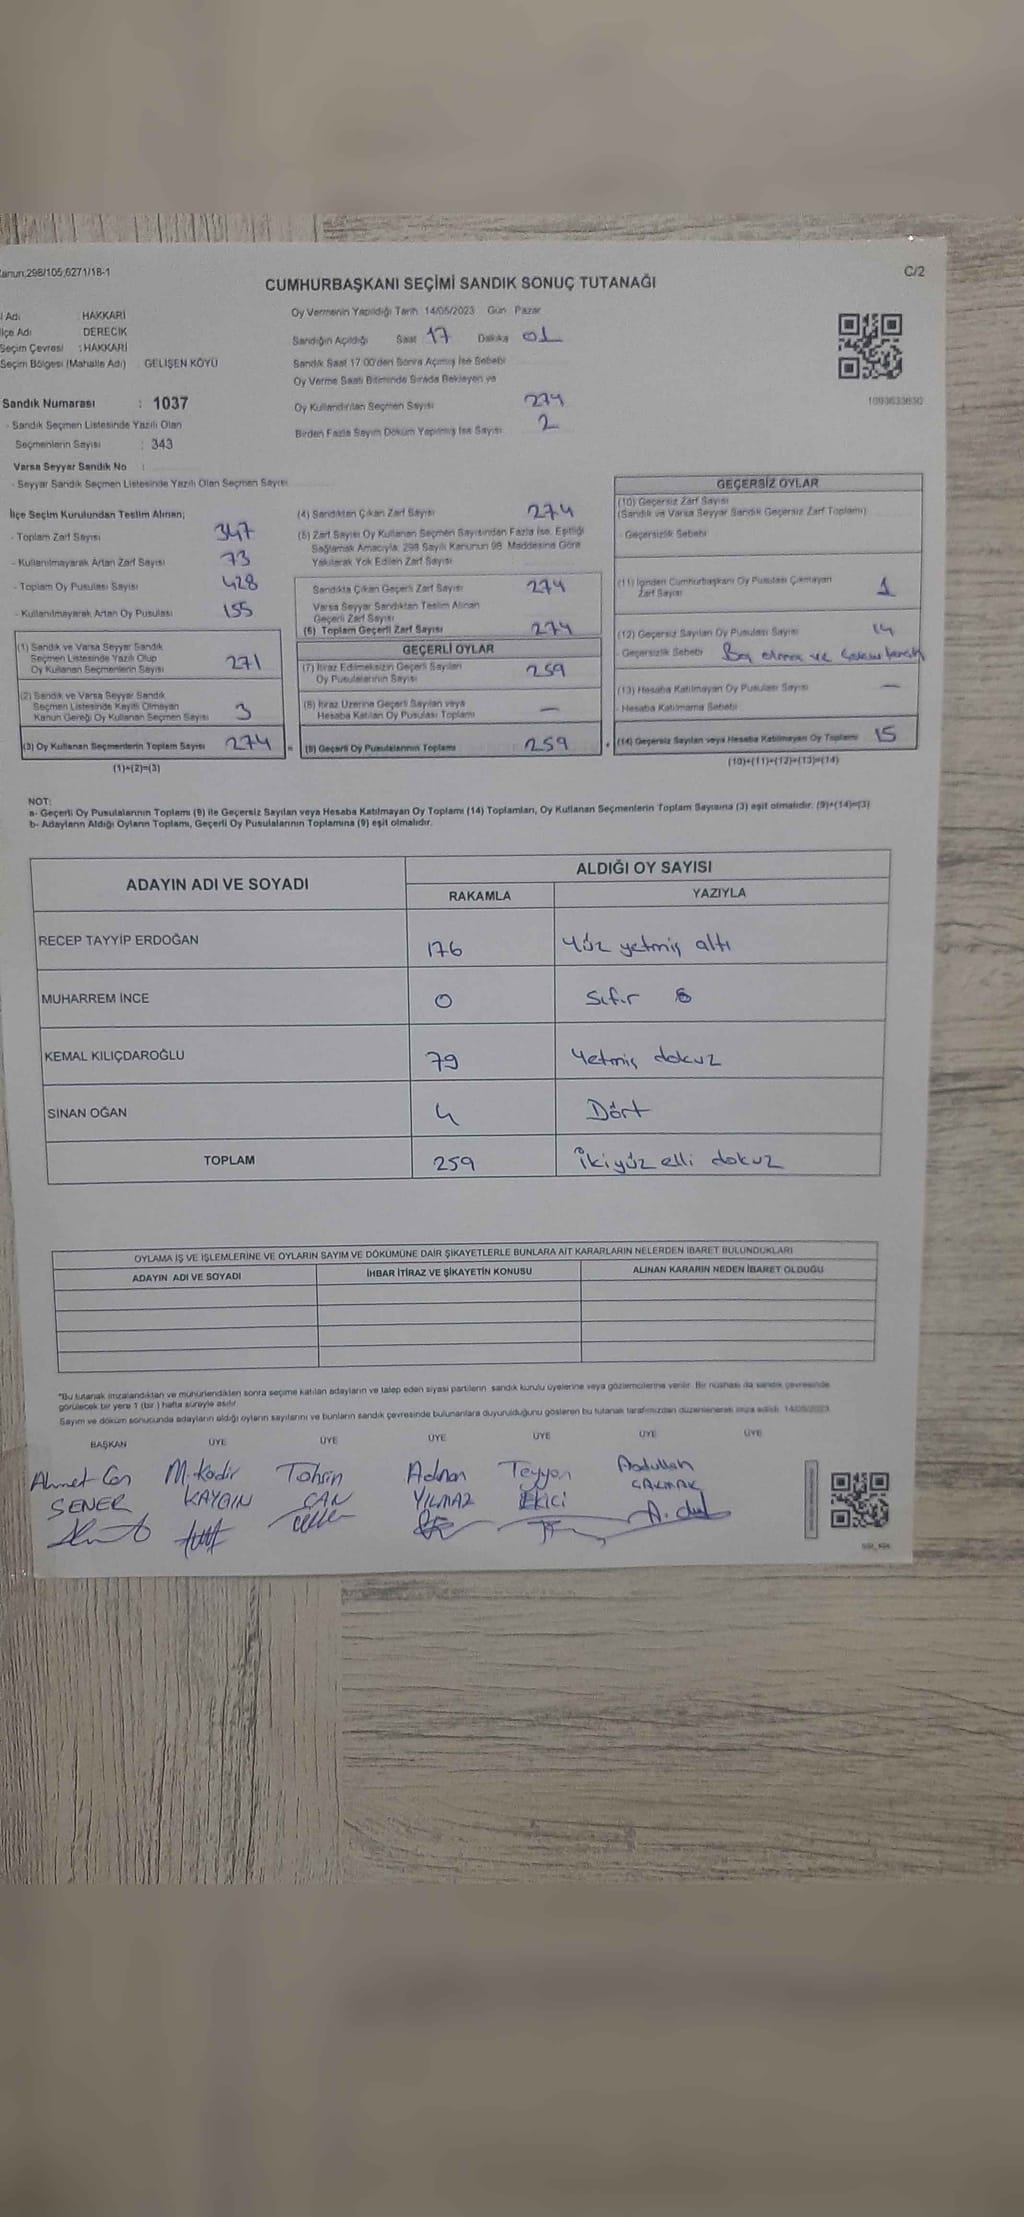 anun;298/105,6271/18-1
C/2
CUMHURBAŞKANI SEÇİMİ SANDIK SONUÇ TUTANAĞI
l Adı : HAKKARİ
lçe Adı : DERECİK
Seçim Çevresi : HAKKARİ
Seçim Bölgesi (Mahalle Adı) GELİŞEN KÖYÜ
Sandık Numarası : 1037
- Sandık Seçmen Listesinde Yazılı Olan
Seçmenlerin Sayısı : 343
Varsa Seyyar Sandık No :
- Seyyar Sandık Seçmen Listesinde Yazılı Olan Seçmen Sayısı
Oy Vermenin Yapıldığı Tarih 14/05/2023 Gün Pazar
Sandığın Açıldığı Saat 17 Dakika 01
Sandık Saat 17.00'den Sonra Açılmış İse Sebebi
Oy Verme Saati Bitiminde Sırada Bekleyen ve
Oy Kullandırılan Seçmen Sayısı 274
Birden Fazla Sayım Döküm Yapılmış İse Sayısı 2
1003633630
İlçe Seçim Kurulundan Teslim Alınan;
- Toplam Zarf Sayısı 347
- Kullanılmayarak Artan Zarf Sayısı 73
- Toplam Oy Pusulası Sayısı 428
- Kullanılmayarak Artan Oy Pusulası 155
(1) Sandık ve Varsa Seyyar Sandık
Seçmen Listesinde Yazılı Olup
Oy Kullanan Seçmenlerin Sayısı 271
(2) Sandık ve Varsa Seyyar Sandık
Seçmen Listesinde Kayıtlı Olmayan
Kanun Gereği Oy Kullanan Seçmen Sayısı 3
(3) Oy Kullanan Seçmenlerin Toplam Sayısı 274
(1)+(2)=(3)
(4) Sandıktan Çıkan Zarf Sayısı 274
(5) Zarf Sayısı Oy Kullanan Seçmen Sayısından Fazla İse, Eşitliği
Sağlamak Amacıyla, 298 Sayılı Kanunun 98. Maddesine Göre
Yakılarak Yok Edilen Zarf Sayısı
Sandıkta Çıkan Geçerli Zarf Sayısı 274
Varsa Seyyar Sandıktan Teslim Alınan
Geçerli Zarf Sayısı
(6) Toplam Geçerli Zarf Sayısı 274
GEÇERLİ OYLAR
(7) İtiraz Edilmeksizin Geçerli Sayılan
Oy Pusulalarının Sayısı 259
(8) İtiraz Üzerine Geçerli Sayılan veya
Hesaba Katılan Oy Pusulası Toplamı —
(9) Geçerli Oy Pusulalarının Toplamı 259
GEÇERSİZ OYLAR
(10) Geçersiz Zarf Sayısı
(Sandık ve Varsa Seyyar Sandık Geçersiz Zarf Toplamı)
- Geçersizlik Sebebi
(11) İçinden Cumhurbaşkanı Oy Pusulası Çıkmayan
Zarf Sayısı 1
(12) Geçersiz Sayılan Oy Pusulası Sayısı 14
- Geçersizlik Sebebi Boş olması ve
(13) Hesaba Katılmayan Oy Pusulası Sayısı —
- Hesaba Katılmama Sebebi
(14) Geçersiz Sayılan veya Hesaba Katılmayan Oy Toplamı 15
(10)+(11)+(12)+(13)=(14)
NOT:
a- Geçerli Oy Pusulalarının Toplamı (9) ile Geçersiz Sayılan veya Hesaba Katılmayan Oy Toplamı (14) Toplamları, Oy Kullanan Seçmenlerin Toplam Sayısına (3) eşit olmalıdır. (9)+(14)=(3)
b- Adayların Aldığı Oyların Toplamı, Geçerli Oy Pusulalarının Toplamına (9) eşit olmalıdır.
ADAYIN ADI VE SOYADI
ALDIĞI OY SAYISI
RAKAMLA YAZIYLA
RECEP TAYYİP ERDOĞAN 176 Yüz yetmiş altı
MUHARREM İNCE 0 Sıfır
KEMAL KILIÇDAROĞLU 79 Yetmiş dokuz
SİNAN OĞAN 4 Dört
TOPLAM 259 İkiyüz elli dokuz
OYLAMA İŞ VE İŞLEMLERİNE VE OYLARIN SAYIM VE DÖKÜMÜNE DAİR ŞİKAYETLERLE BUNLARA AİT KARARLARIN NELERDEN İBARET BULUNDUKLARI
ADAYIN ADI VE SOYADI İHBAR İTİRAZ VE ŞİKAYETİN KONUSU ALINAN KARARIN NEDEN İBARET OLDUĞU
*Bu tutanak imzalandıktan ve mühürlendikten sonra seçime katılan adayların ve talep eden siyasi partilerin sandık kurulu üyelerine veya gözlemcilerine verilir. Bir nüshası da sandık çevresinde
görülecek bir yere 1 (bir ) hafta süreyle asılır.
Sayım ve döküm sonucunda adayların aldığı oyların sayılarını ve bunların sandık çevresinde bulunanlara duyurulduğunu gösteren bu tutanak tarafımızdan düzenlenerek imza edildi. 14/05/2023
BAŞKAN ÜYE ÜYE ÜYE ÜYE ÜYE ÜYE
Ahmet Can M.Kadir Tahsin Adnan Teyyan Abdullah
ŞENER KAYGIN CAN YILMAZ EKİCİ ÇAKMAK